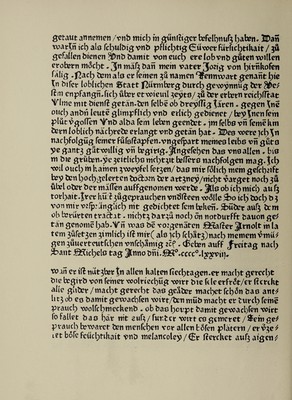 geraut annemen / vnd mich in günstiger befelhnuß haben. Dañ
war Ich als schuldig vnd pflichtig Euwer fürlichtikait / zů
gefallen dienen Vnd damit von euch ere lob vnd gůten willen
erobern möcht. In maß dañ mein vater Jorig von hirnkofen
sälig. Nach dem als er seinen zů namen Rennwart genant hie
In diser loblichen Statt Nürmberg durch gewynnug der Ve⸗
stin empfangn. sich über er wieuil zeytz / zů der erbern reichstat
Vlme mit dienst getän. den selbē ob dreyssig Jären. gegen Inē
ouch andn leutē glimpflich vnd erlich gediener / bey Inen sein
plůt vgossen Vnd alda sein leben geendet. im selbs vñ seinē kin
dern loblich nächrede erlangt vnd getän hat. Des were ich In
nachfolgūg seiner fůßstapfen. vngespart meines lebs vñ gůts
ye gantz gůtwillig vñ begirig. Angesehen das vns allen. bis
in die grüben. ye zeitlichs nichtz bessers nachfolgen mag. Ich
wil ouch in kainen zweyfel setzen / das mir sölich mein geschrifte
bey den hochgelerten doctorn der artzney / nicht varget noch zů
übel oder der massen auffgenomen werde. Als ob ich mich auß
torhait. Irer kūst geprauchen vndsteen wölle So ich doch dz
von mir vrsprünglich nit gedichtet sein bekeñ. Sūder auß dem
ob berürten eractat. nichtz darzů noch on notdurfft dauon ge⸗
tän genomē hab. Vñ was dē vorgenantē Maister Arnolt in la
tem zůsetzen zimlich ist mir (als ich schätz) nach meinem vmü⸗
gen zůuertentschen vnschämig zc̄. Geben auff Freitag nach
Sant Michels tag Anno dñi. M°. cccc°. lxxviii.
wañ er ist nätzber In allen kalten siechtagen. er macht gerecht
die begird von seiner wolriechūg wirt die sele erfröt / er sterckt
alle glider / macht gerecht das geäder machet schön das ant⸗
litz ob eq damit gewaschen wirt / den mūd macht er durch seinē
prauch wolschmeckend. ob das houpt damit gewaschen wirt
so fallet das här nit auß / sunder wirt es gemeret / Sein ge⸗
prauch bewaret den menschen vor allen bösen platern / er vze⸗
iet böse feüchtikait vnd melancoley / Er sterckt auß aigen⸗